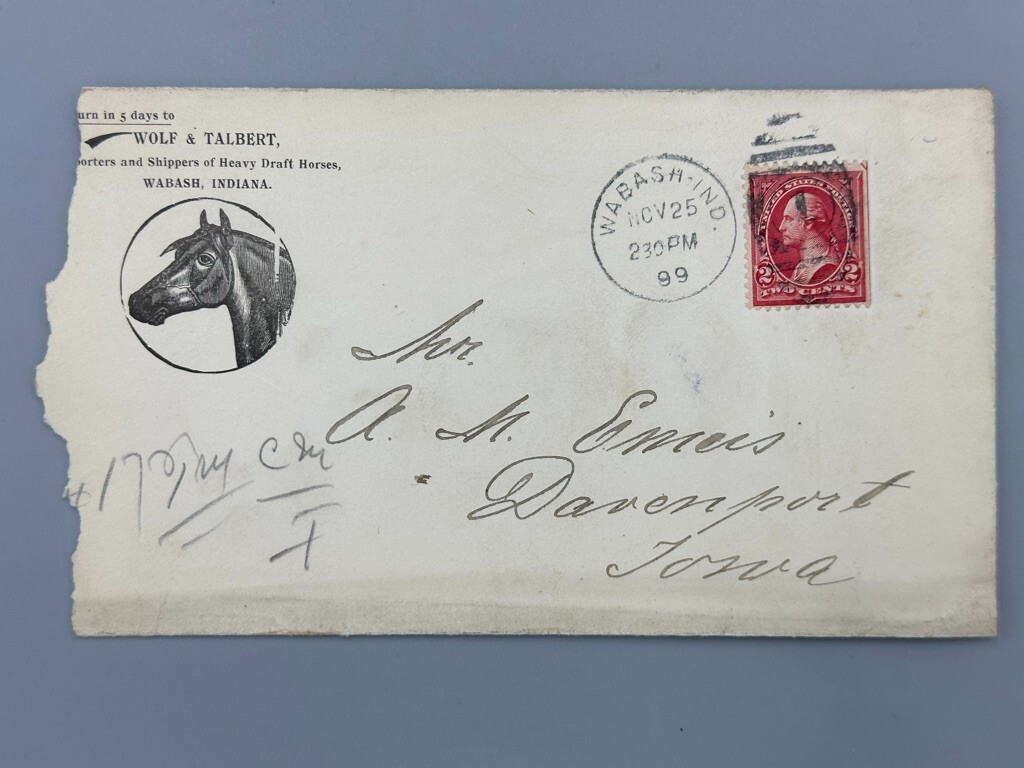 urn in 5 days to
WOLF & TALBERT,
porters and Shippers of Heavy Draft Horses,
WABASH, INDIANA.
WABASH-IND.
NOV 25
230PM
99
UNITED STATES POSTAGE
2 2
TWO CENTS
Mr.
A. M. Emeis
Davenport
Iowa